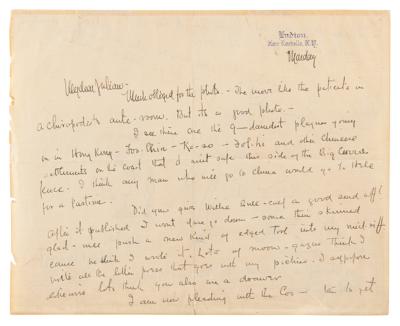 Endion
New Rochelle, N.Y.
Monday
My dear Julian -
Much obliged for the photo. - We move like the patients in
a chiropodist's ante-room. But it's a good photo. -
I see there are the g—damdest plagues going
on in Hong Kong - Foo-Chow - and other Chinese
settlements on the coast that it ain't safe this side of the Big
fence. I think any man who will go to China would go to
for a pastime.
Did you give Willie a good send off?
After it published I won't dare go down - some then skinned
push a new kind of edged tool into my
cause he think I wrote it. Lots of moon-gazers think I
write all the prose that goes with my pictures. I suppose
lots think you also are a drawer
I am now pleading with the Cos - to get